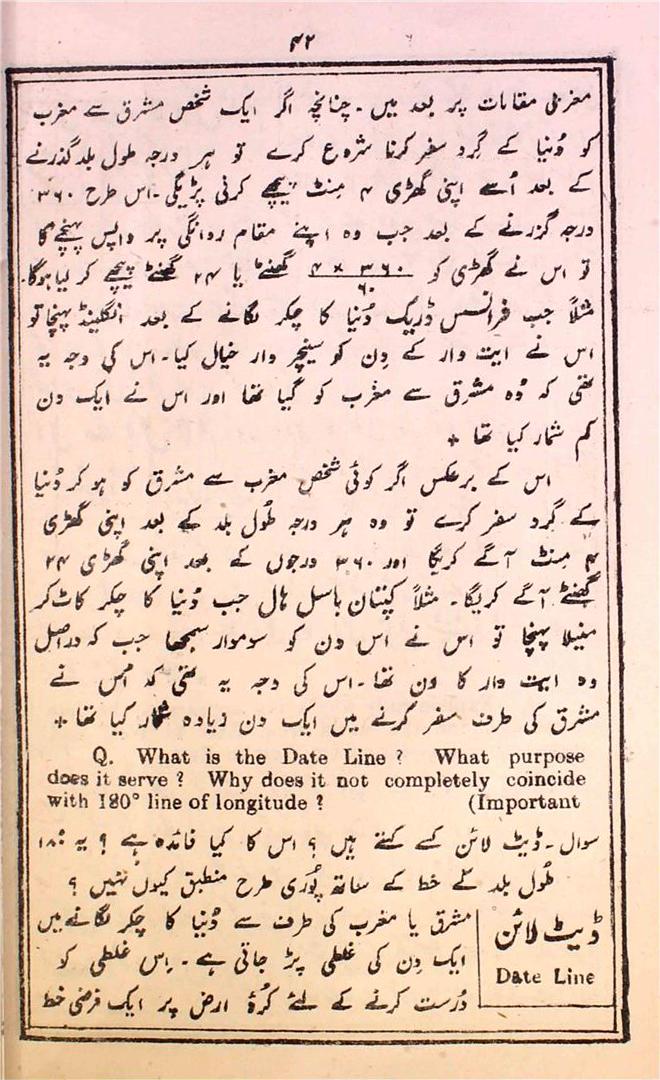 ۴۲
مغربی مقامات پر بعد میں۔ چنانچہ اگر ایک شخص مشرق سے مغرب
کو دُنیا کے گِرد سفر کرنا شروع کرے تو ہر درجہ طول بلد گذرنے
کے بعد اُسے اپنی گھڑی ۴ مِنٹ پیچھے کرنی پڑیگی۔ اس طرح ۳۶۰
درجہ گزرنے کے بعد جب وہ اپنے مقام روانگی پر واپس پہنچے گا
تو اس نے گھڑی کو ۳۶۰ × ۴ / ۶۰ گھنٹے یا ۲۴ گھنٹے پیچھے کر لیا ہوگا۔
مثلاً جب فرانسس ڈریک دُنیا کا چکر لگانے کے بعد انگلینڈ پہنچا تو
اس نے ایت وار کے دِن کو سنیچر وار خیال کیا۔ اس کی وجہ یہ
تھی کہ وُہ مشرق سے مغرب کو گیا تھا اور اس نے ایک دن
کم شمار کیا تھا +
اس کے برعکس اگر کوئی شخص مغرب سے مشرق کو ہو کر دُنیا
کے گرد سفر کرے تو وہ ہر درجہ طُول بلد کے بعد اپنی گھڑی
۴ مِنٹ آگے کریگا اور ۳۶۰ درجوں کے بعد اپنی گھڑی ۲۴
گھنٹے آگے کریگا۔ مثلاً کپتان باسل ہال جب دُنیا کا چکر کاٹ کر
منیلا پہنچا تو اس نے اس دن کو سوموار سمجھا جب کہ دراصل
وہ ایت وار کا دن تھا۔ اس کی وجہ یہ تھی کہ اس نے
مشرق کی طرف سفر کرنے میں ایک دن زیادہ شمار کیا تھا +
Q. What is the Date Line ? What purpose
does it serve ? Why does it not completely coincide
with 180° line of longitude ? (Important
سوال۔ ڈیٹ لائن کسے کہتے ہیں ؟ اس کا کیا فائدہ ہے ؟ یہ ۱۸۰°
طُول بلد کے خط کے ساتھ پُوری طرح منطبق کیوں نہیں ؟
ڈیٹ لائن
Date Line
مشرق یا مغرب کی طرف سے دُنیا کا چکر لگانے میں
ایک دِن کی غلطی پڑ جاتی ہے۔ اِس غلطی کو
دُرست کرنے کے لئے کُرۂ ارض پر ایک فرضی خط